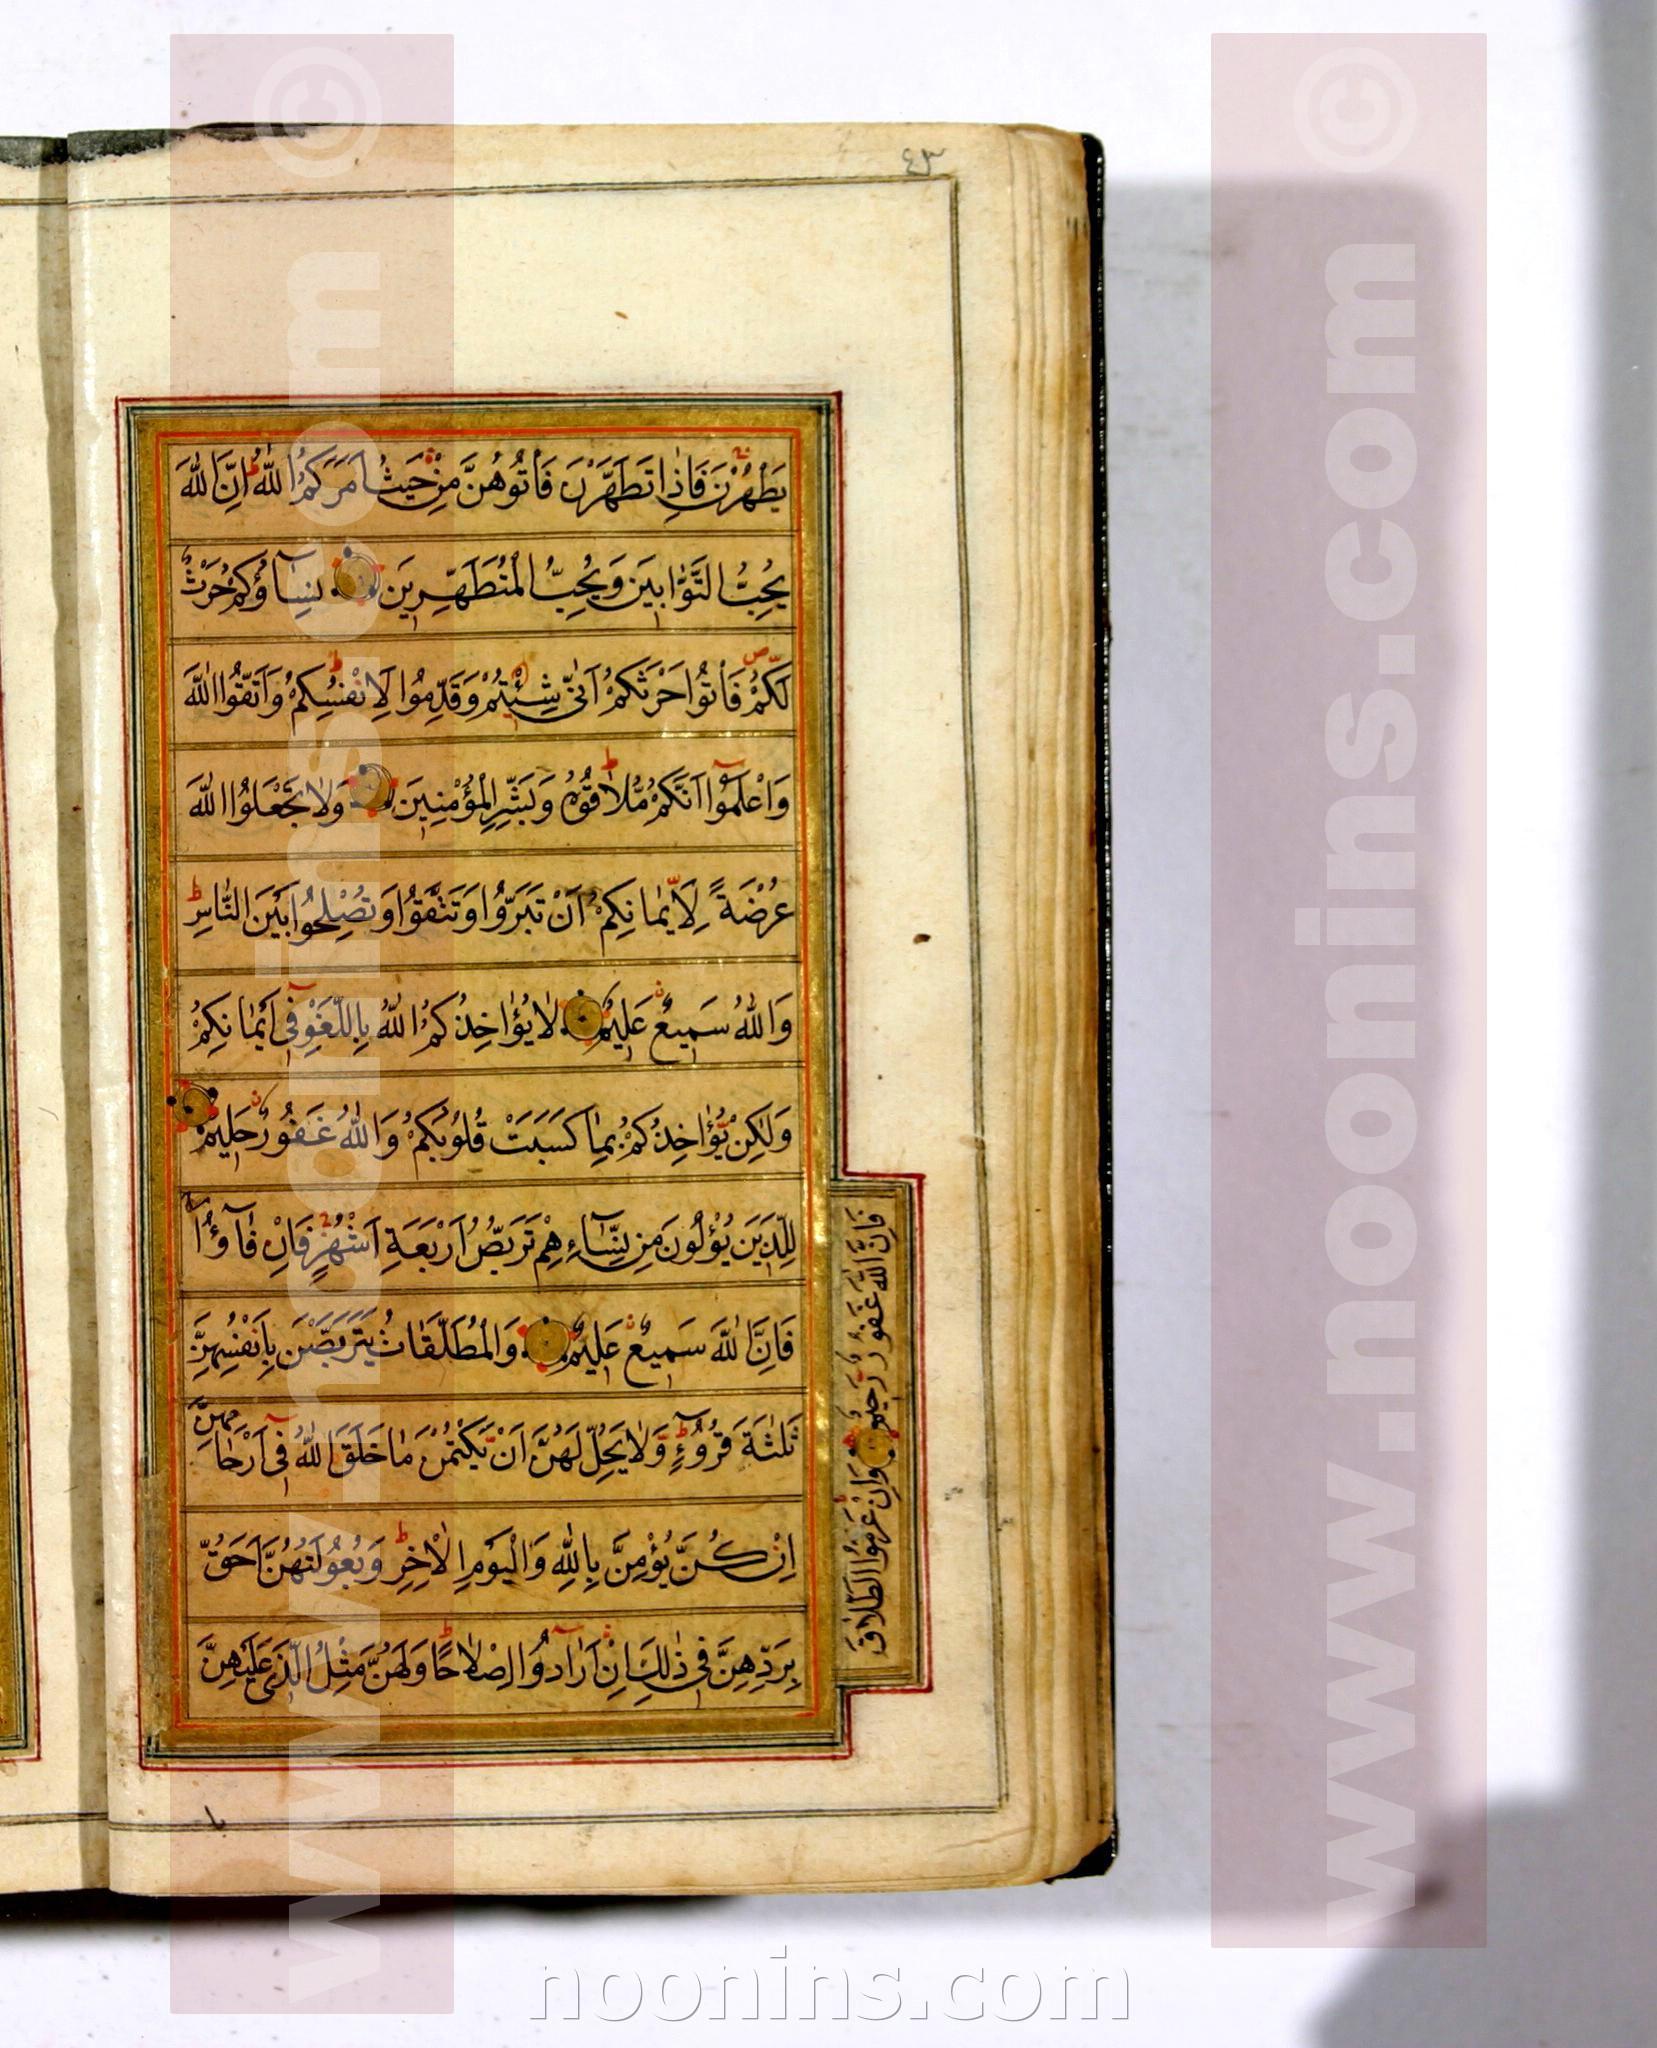 ٤٣
يَطْهُرْنَ فَاِذَا تَطَهَّرْنَ فَأْتُوهُنَّ مِنْ حَيْثُ اَمَرَكُمُ اللّٰهُ اِنَّ اللّٰهَ
يُحِبُّ التَّوَّابِينَ وَيُحِبُّ الْمُتَطَهِّرِينَ نِسَاۤؤُكُمْ حَرْثٌ
لَكُمْ فَأْتُوا حَرْثَكُمْ اَنّٰى شِئْتُمْ وَقَدِّمُوا لِاَنْفُسِكُمْ وَاتَّقُوا اللّٰهَ
وَاعْلَمُوۤا اَنَّكُمْ مُلَاقُوهُ وَبَشِّرِ الْمُؤْمِنِينَ وَلَا تَجْعَلُوا اللّٰهَ
عُرْضَةً لِاَيْمَانِكُمْ اَنْ تَبَرُّوا وَتَتَّقُوا وَتُصْلِحُوا بَيْنَ النَّاسِ
وَاللّٰهُ سَمِيعٌ عَلِيمٌ لَا يُؤَاخِذُكُمُ اللّٰهُ بِاللَّغْوِ فِۤي اَيْمَانِكُمْ
وَلٰكِنْ يُؤَاخِذُكُمْ بِمَا كَسَبَتْ قُلُوبُكُمْ وَاللّٰهُ غَفُورٌ حَلِيمٌ
لِلَّذِينَ يُؤْلُونَ مِنْ نِسَاۤءِهِمْ تَرَبُّصُ اَرْبَعَةِ اَشْهُرٍ فَاِنْ فَاۤؤُا
فَاِنَّ اللّٰهَ غَفُورٌ رَحِيمٌ وَاِنْ عَزَمُوا الطَّلَاقَ
فَاِنَّ اللّٰهَ سَمِيعٌ عَلِيمٌ وَالْمُطَلَّقَاتُ يَتَرَبَّصْنَ بِاَنْفُسِهِنَّ
ثَلٰثَةَ قُرُوۤءٍ وَلَا يَحِلُّ لَهُنَّ اَنْ يَكْتُمْنَ مَا خَلَقَ اللّٰهُ فِۤي اَرْحَامِهِنَّ
اِنْ كُنَّ يُؤْمِنَّ بِاللّٰهِ وَالْيَوْمِ الْاٰخِرِ وَبُعُولَتُهُنَّ اَحَقُّ
بِرَدِّهِنَّ فِي ذٰلِكَ اِنْ اَرَادُوۤا اِصْلَاحًا وَلَهُنَّ مِثْلُ الَّذِي عَلَيْهِنَّ
با
www.noonins.com ©
www.noonins.com ©
noonins.com